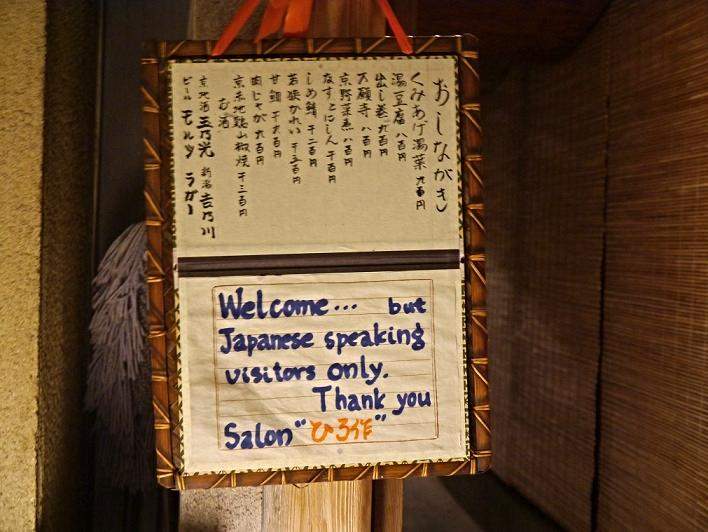 おしながき
くみあげ湯葉 九百円
湯豆腐 八百円
出し巻 九百円
万願寺 八百円
京野菜煮 八百円
なすとにしん 千百円
しめ鯖 千二百円
若狭かれい 千三百円
甘鯛 千六百円
肉じゃが 九百円
京赤地鶏山椒焼 千三百円
お酒
京地酒 玉乃光 新潟 吉乃川
ビール モルツ ラガー
Welcome... but
Japanese speaking
visitors only.
Thank you
Salon "ひろ作"